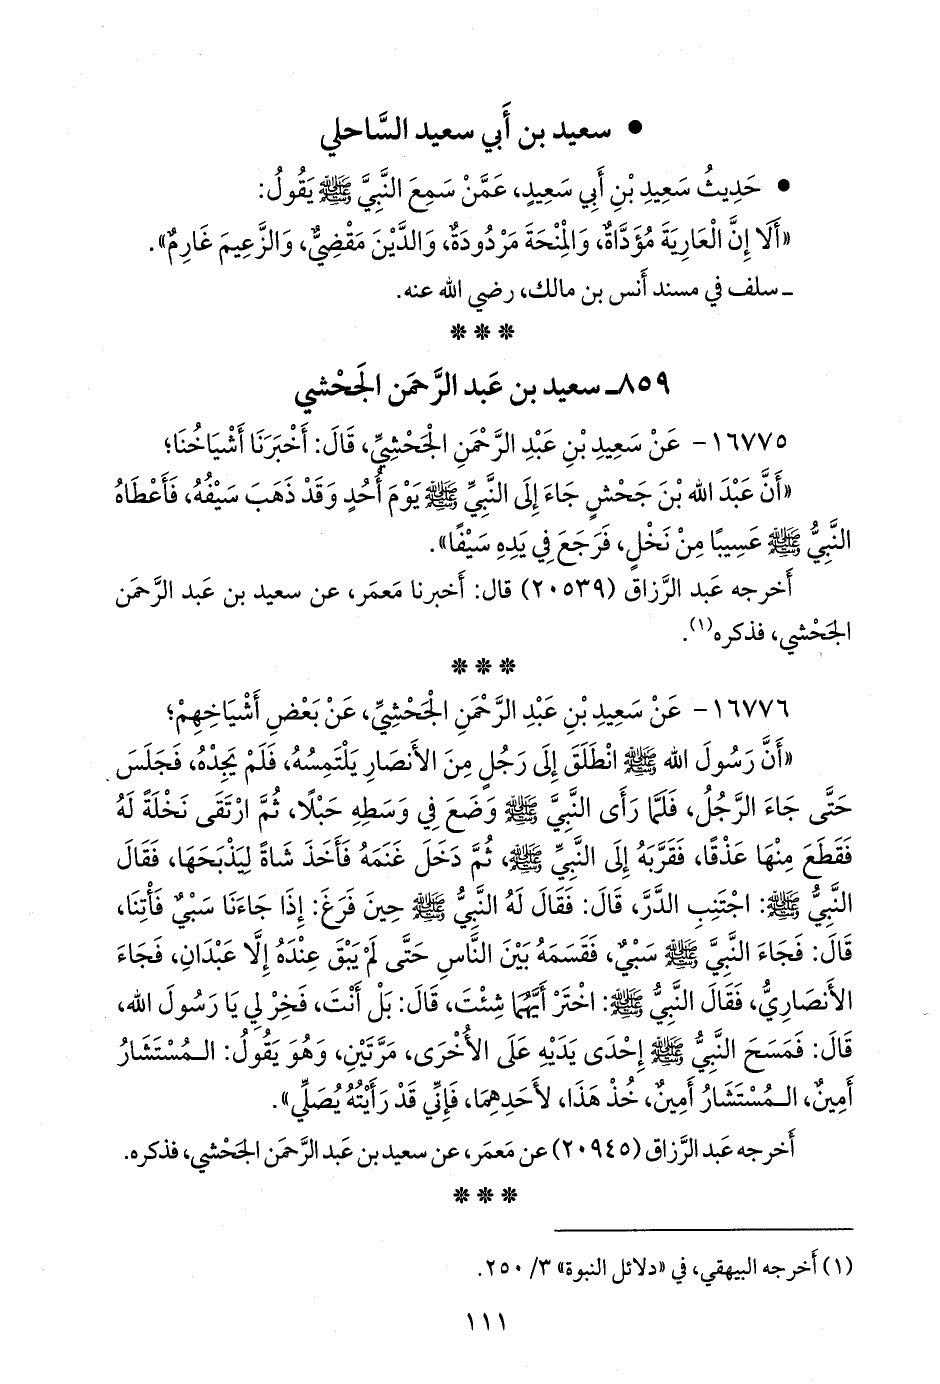 • سعيد بن أَبي سعيد السَّاحلي
• حَدِيثُ سَعِيدِ بْنِ أَبِي سَعِيدٍ، عَمَّنْ سَمِعَ النَّبِيَّ ﷺ يَقُولُ:
«أَلَا إِنَّ الْعَارِيَةَ مُؤَدَّاةٌ، وَالْمِنْحَةَ مَرْدُودَةٌ، وَالدَّيْنَ مَقْضِيٌّ، وَالزَّعِيمَ غَارِمٌ».
ـ سلف في مسند أَنس بن مالك، رضي الله عنه.
***
٨٥٩ـ سعيد بن عَبد الرَّحمَن الجَحْشي
١٦٧٧٥ - عَنْ سَعِيدِ بْنِ عَبْدِ الرَّحْمَنِ الْجَحْشِيِّ، قَالَ: أَخْبَرَنَا أَشْيَاخُنَا؛
«أَنَّ عَبْدَ الله بْنَ جَحْشٍ جَاءَ إِلَى النَّبِيِّ ﷺ يَوْمَ أُحُدٍ وَقَدْ ذَهَبَ سَيْفُهُ، فَأَعْطَاهُ
النَّبِيُّ ﷺ عَسِيبًا مِنْ نَخْلٍ، فَرَجَعَ فِي يَدِهِ سَيْفًا».
أَخرجه عَبد الرَّزاق (٢٠٥٣٩) قال: أَخبرنا مَعمَر، عن سعيد بن عَبد الرَّحمَن
الجَحْشي، فذكره(١).
***
١٦٧٧٦ - عَنْ سَعِيدِ بْنِ عَبْدِ الرَّحْمَنِ الْجَحْشِيِّ، عَنْ بَعْضِ أَشْيَاخِهِمْ؛
«أَنَّ رَسُولَ الله ﷺ انْطَلَقَ إِلَى رَجُلٍ مِنَ الأَنْصَارِ يَلْتَمِسُهُ، فَلَمْ يَجِدْهُ، فَجَلَسَ
حَتَّى جَاءَ الرَّجُلُ، فَلَمَّا رَأَى النَّبِيَّ ﷺ وَضَعَ فِي وَسَطِهِ حَبْلًا، ثُمَّ ارْتَقَى نَخْلَةً لَهُ
فَقَطَعَ مِنْهَا عَذْقًا، فَقَرَّبَهُ إِلَى النَّبِيِّ ﷺ، ثُمَّ دَخَلَ غَنَمَهُ فَأَخَذَ شَاةً لِيَذْبَحَهَا، فَقَالَ
النَّبِيُّ ﷺ: اجْتَنِبِ الدَّرَّ، قَالَ: فَقَالَ لَهُ النَّبِيُّ ﷺ حِينَ فَرَغَ: إِذَا جَاءَنَا سَبْيٌ فَأْتِنَا،
قَالَ: فَجَاءَ النَّبِيَّ ﷺ سَبْيٌ، فَقَسَمَهُ بَيْنَ النَّاسِ حَتَّى لَمْ يَبْقَ عِنْدَهُ إِلَّا عَبْدَانِ، فَجَاءَ
الأَنْصَارِيُّ، فَقَالَ النَّبِيُّ ﷺ: اخْتَرْ أَيَّهُمَا شِئْتَ، قَالَ: بَلْ أَنْتَ، فَخِرْ لِي يَا رَسُولَ الله،
قَالَ: فَمَسَحَ النَّبِيُّ ﷺ إِحْدَى يَدَيْهِ عَلَى الأُخْرَى، مَرَّتَيْنِ، وَهُوَ يَقُولُ: الـمُسْتَشَارُ
أَمِينٌ، الـمُسْتَشَارُ أَمِينٌ، خُذْ هَذَا، لأَحَدِهِمَا، فَإِنِّي قَدْ رَأَيْتُهُ يُصَلِّي».
أَخرجه عَبد الرَّزاق (٢٠٩٤٥) عن مَعمَر، عن سعيد بن عَبد الرَّحمَن الجَحْشي، فذكره.
***
(١) أَخرجه البيهقي، في «دلائل النبوة» ٣/ ٢٥٠.
١١١